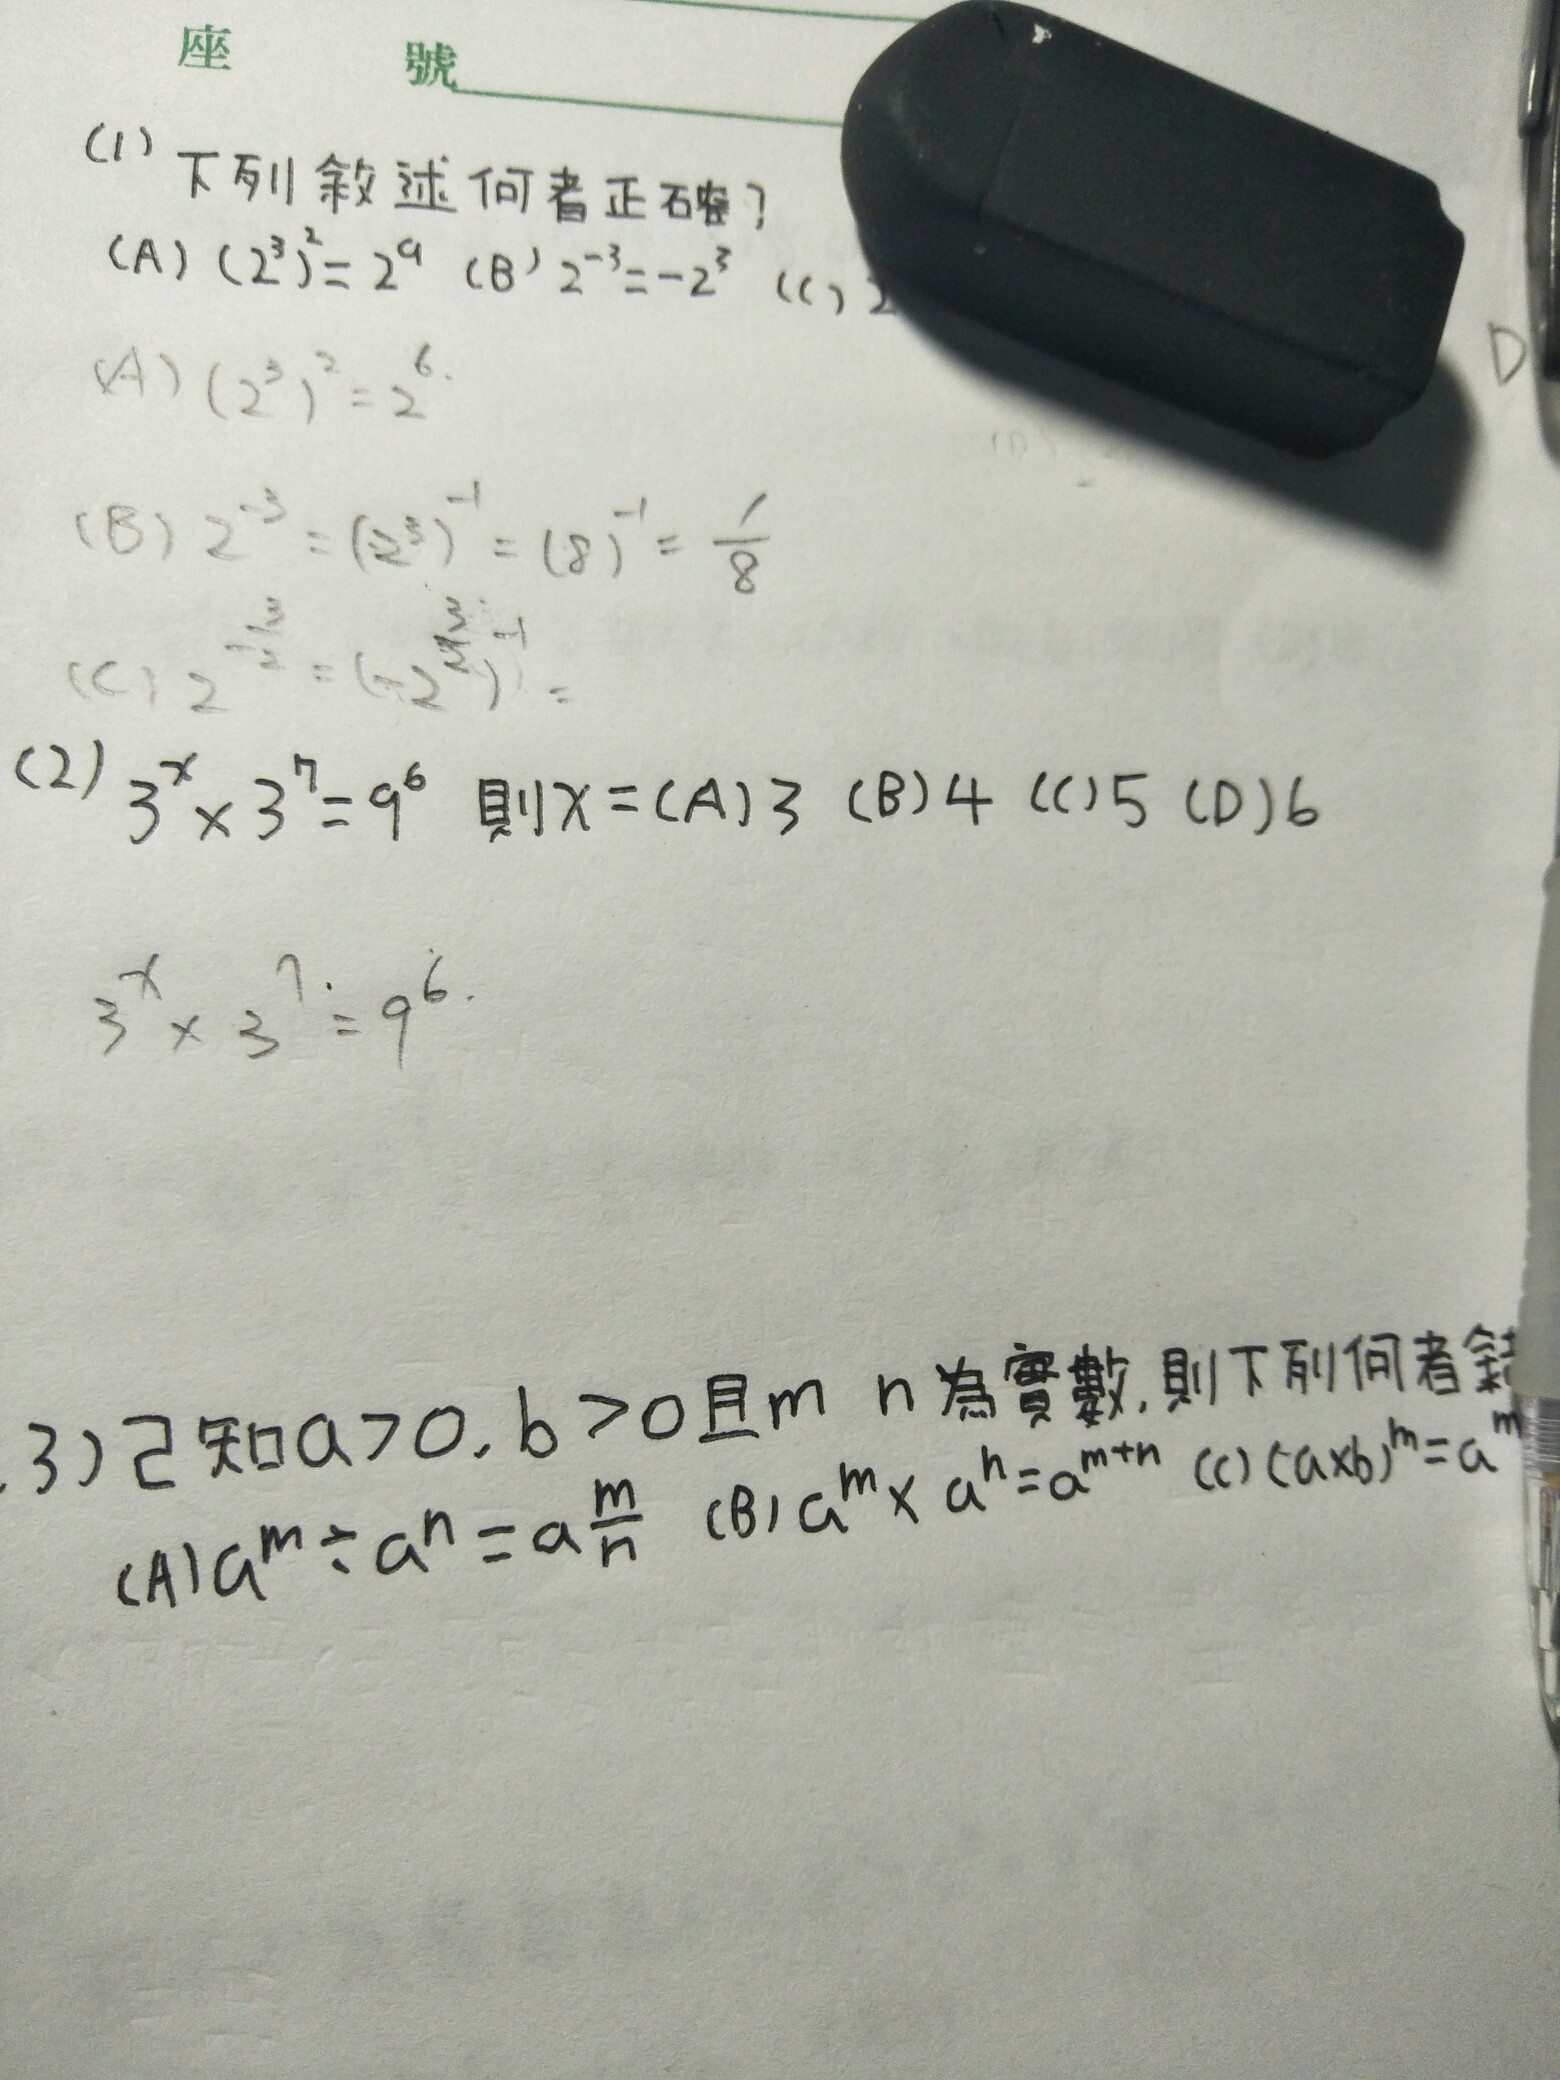 座 號
(1) 下列敘述何者正確?
(A) (2³)² = 2⁹ (B) 2⁻³ = -2³ (C) 2
(A) (2³)² = 2⁶.
D
(B) 2⁻³ = (2³)⁻¹ = (8)⁻¹ = 1/8
(C) 2
(2) 3ˣ × 3⁷ = 9⁶ 則x = (A) 3 (B) 4 (C) 5 (D) 6
3ˣ × 3⁷ = 9⁶.
3) 已知a>0, b>0且m n為實數, 則下列何者
(A) aᵐ ÷ aⁿ = a^(m/n) (B) aᵐ × aⁿ = aᵐ⁺ⁿ (C) (a×b)ᵐ = aᵐ